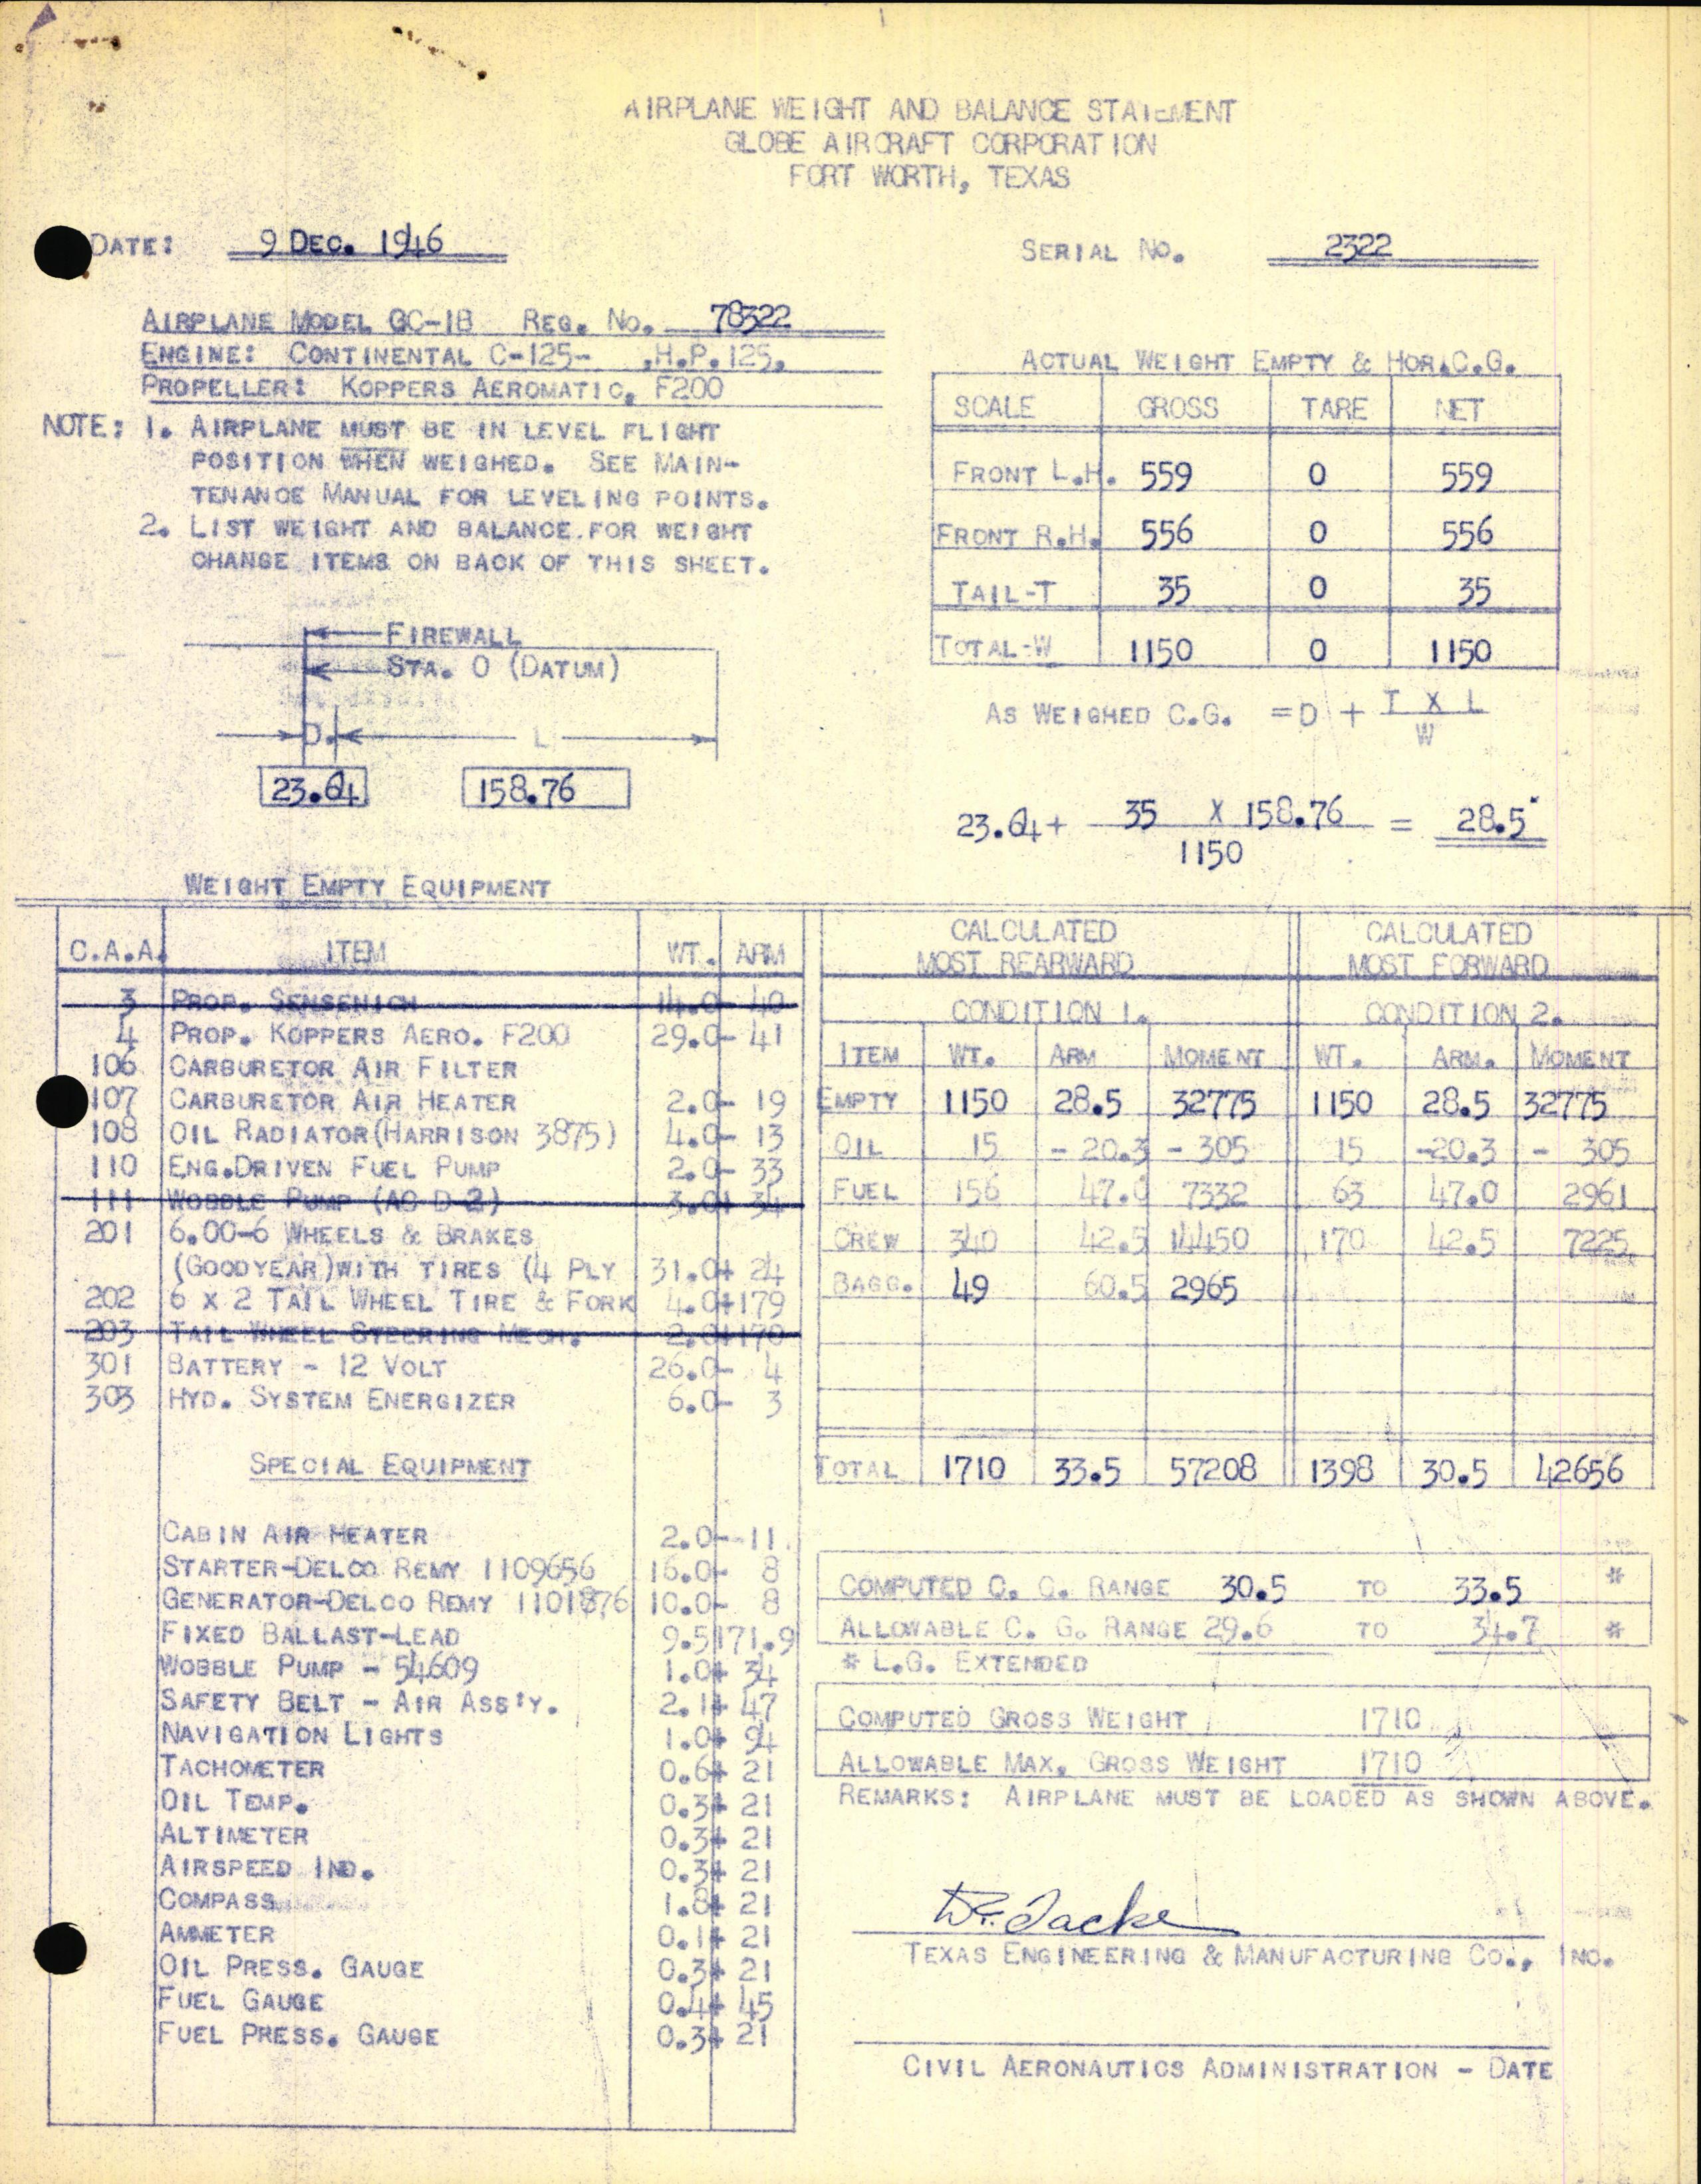 AIRPLANE WEIGHT AND BALANCE STATEMENT
GLOBE AIRCRAFT CORPORATION
FORT WORTH, TEXAS
DATE: 9 DEC. 1946
SERIAL NO. 2322
AIRPLANE MODEL GC-1B REG. NO. 78322
ENGINE: CONTINENTAL C-125- .H.P.125.
PROPELLER: KOPPERS AEROMATIC, F200
NOTE: 1. AIRPLANE MUST BE IN LEVEL FLIGHT
POSITION WHEN WEIGHED. SEE MAIN-
TENANCE MANUAL FOR LEVELING POINTS.
2. LIST WEIGHT AND BALANCE FOR WEIGHT
CHANGE ITEMS ON BACK OF THIS SHEET.
ACTUAL WEIGHT EMPTY & HOR.C.G.
SCALE GROSS TARE NET
FRONT L.H. 559 0 559
FRONT R.H. 556 0 556
TAIL-T 35 0 35
TOTAL-W 1150 0 1150
FIREWALL
STA. 0 (DATUM)
D. L
23.64 158.76
AS WEIGHED C.G. = D + T X L
W
23.64 + 35 X 158.76 = 28.5"
1150
WEIGHT EMPTY EQUIPMENT
C.A.A. ITEM WT. ARM
3 PROP. SENSENICH 14.0- 40
4 PROP. KOPPERS AERO. F200 29.0- 41
106 CARBURETOR AIR FILTER
107 CARBURETOR AIR HEATER 2.0- 19
108 OIL RADIATOR(HARRISON 3875) 4.0- 13
110 ENG.DRIVEN FUEL PUMP 2.0- 33
111 WOBBLE PUMP (AC D-2) 3.0+ 34
201 6.00-6 WHEELS & BRAKES
(GOODYEAR)WITH TIRES (4 PLY 31.0+ 24
202 6 X 2 TAIL WHEEL TIRE & FORK 4.0+179
203 TAIL WHEEL STEERING MECH. 2.0+170
301 BATTERY - 12 VOLT 26.0- 4
303 HYD. SYSTEM ENERGIZER 6.0- 3
SPECIAL EQUIPMENT
CABIN AIR HEATER 2.0--11.
STARTER-DELCO REMY 1109656 16.0- 8
GENERATOR-DELCO REMY 1101876 10.0- 8
FIXED BALLAST-LEAD 9.5 171.9
WOBBLE PUMP - 54609 1.0+ 34
SAFETY BELT - AIR ASS'Y. 2.1+ 47
NAVIGATION LIGHTS 1.0+ 94
TACHOMETER 0.6+ 21
OIL TEMP. 0.3+ 21
ALTIMETER 0.3+ 21
AIRSPEED IND. 0.3+ 21
COMPASS 1.8+ 21
AMMETER 0.1+ 21
OIL PRESS. GAUGE 0.3+ 21
FUEL GAUGE 0.4+ 45
FUEL PRESS. GAUGE 0.3+ 21
CALCULATED MOST REARWARD CALCULATED MOST FORWARD
CONDITION 1. CONDITION 2.
ITEM WT. ARM MOMENT WT. ARM. MOMENT
EMPTY 1150 28.5 32775 1150 28.5 32775
OIL 15 - 20.3 - 305 15 -20.3 - 305
FUEL 156 47.0 7332 63 47.0 2961
CREW 340 42.5 14450 170 42.5 7225
BAGG. 49 60.5 2965
TOTAL 1710 33.5 57208 1398 30.5 42656
COMPUTED C. G. RANGE 30.5 TO 33.5 *
ALLOWABLE C. G. RANGE 29.6 TO 34.7 *
* L.G. EXTENDED
COMPUTED GROSS WEIGHT 1710
ALLOWABLE MAX. GROSS WEIGHT 1710
REMARKS: AIRPLANE MUST BE LOADED AS SHOWN ABOVE.
TEXAS ENGINEERING & MANUFACTURING CO., INC.
CIVIL AERONAUTICS ADMINISTRATION - DATE